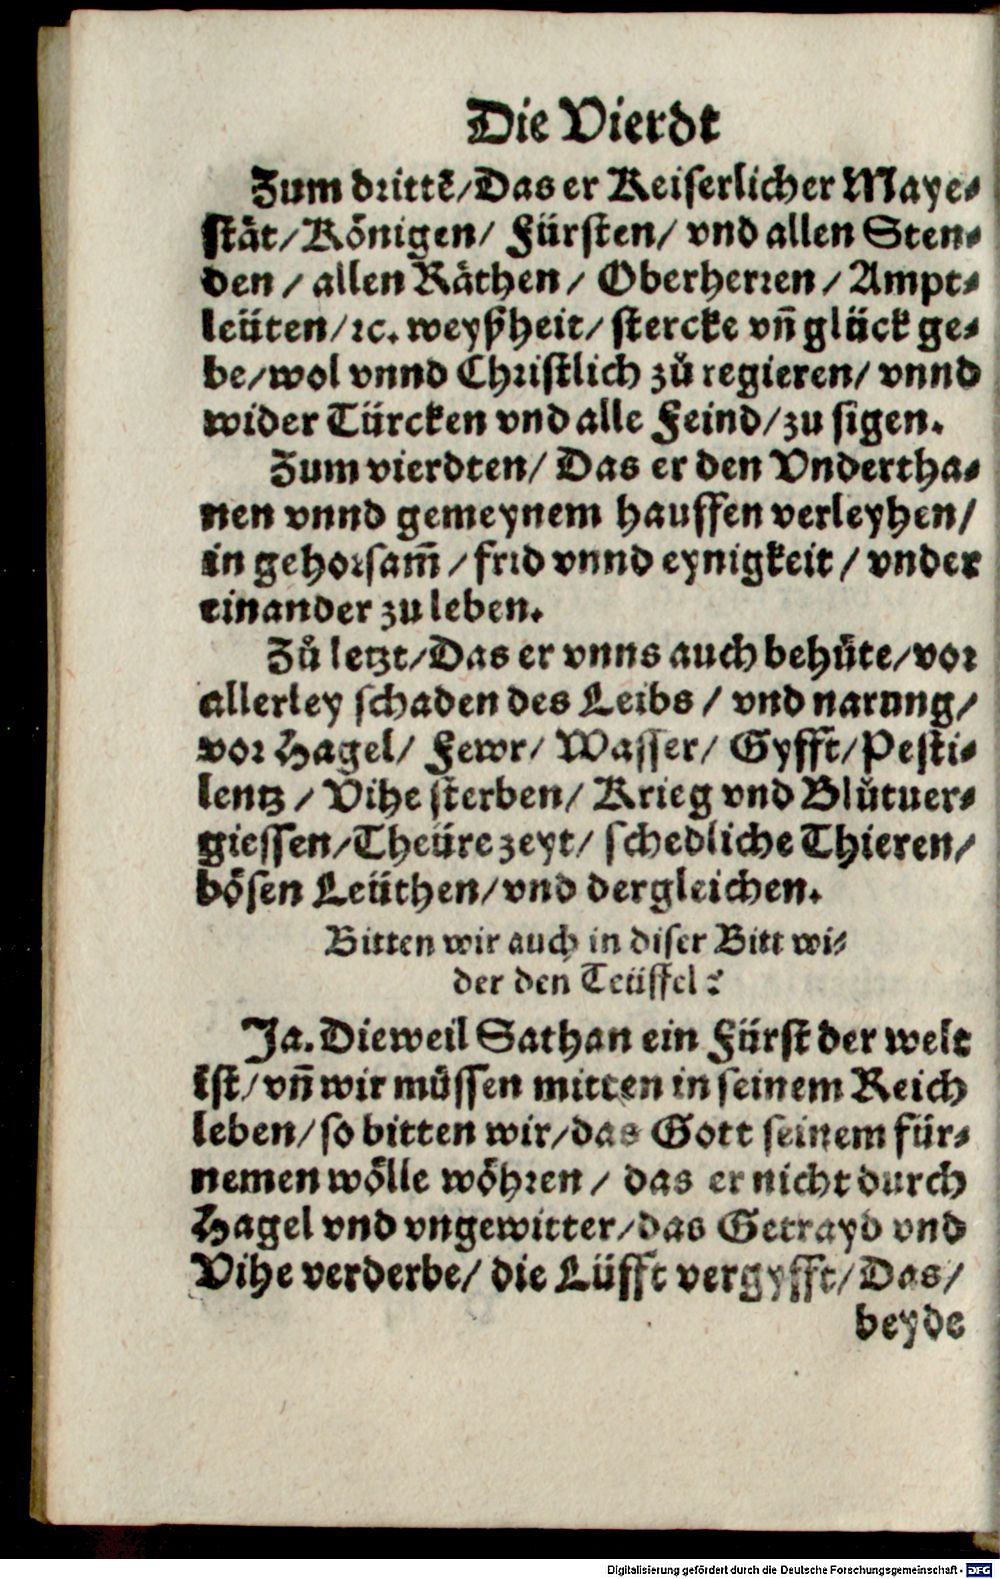 Die Vierdt
Zum drittẽ/Das er Keiserlicher Maye⸗
stät/Königen/ Fürsten/ vnd allen Sten⸗
den / allen Räthen / Oberherren / Ampt⸗
leüten/ꝛc. weyßheit/ stercke vñ glück ge⸗
be/wol vnnd Christlich zů regieren/ vnnd
wider Türcken vnd alle Feind/zu sigen.
Zum vierdten/ Das er den Vndertha⸗
nen vnnd gemeynem hauffen verleyhen/
in gehorsam̃ / frid vnnd eynigkeit / vnder
einander zu leben.
Zů letzt/Das er vnns auch behüte/vor
allerley schaden des Leibs / vnd narung/
vor Hagel/ Fewr/ Wasser/ Gyfft/Pesti⸗
lentz / Vihe sterben/ Krieg vnd Blůtuer⸗
giessen/Theüre zeyt/ schedliche Thieren/
bösen Leüthen/vnd dergleichen.
Bitten wir auch in diser Bitt wi⸗
der den Teüffel?
Ja. Dieweil Sathan ein Fürst der welt
ist/vñ wir müssen mitten in seinem Reich
leben/so bitten wir/das Gott seinem für⸗
nemen wölle wöhren / das er nicht durch
Hagel vnd vngewitter/das Getrayd vnd
Vihe verderbe/ die Lüfft vergyfft/Das/
beyde
Digitalisierung gefördert durch die Deutsche Forschungsgemeinschaft - DFG